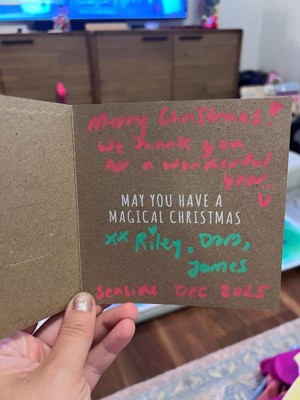 Merry Christmas!
We thank you
for a wonderful
year.
MAY YOU HAVE A
MAGICAL CHRISTMAS
xx Riley, Dora,
James
Seaside Dec 2025